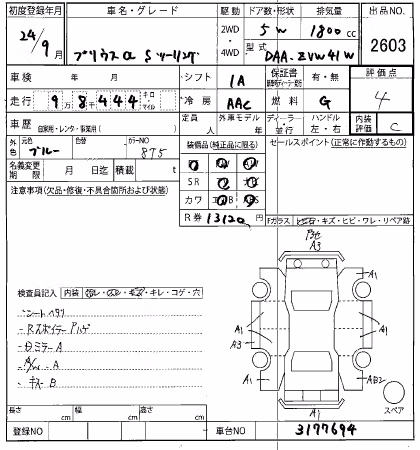 初度登録年月 車名・グレード 駆動 ドア数・形状 排気量 出品NO.
24/9月 プリウスα Sツーリング 2WD・4WD 5W 1800cc 2603
型式 DAA-ZVW41W
車検 年 月 シフト IA 保証書 有・無 評価点 4
走行 9万8千444 キロ・マイル 冷房 AAC 燃料 G
車歴 自家用・レンタ・事業用( ) 定員 人 外車モデル 年 ディーラー・並行 ハンドル 左・右 内装評価 C
外色 元色 ブルー 色替 カラーNO 8T5 装備品(純正品に限る) セールスポイント(正常に作動するもの)
名義変更期限 月 日迄 積載 t SR
注意事項(欠品・修復・不具合箇所および状態) カワ
R券 13120円 Fガラス ヒビ・キズ・ヒビ・ワレ・リペア跡
A3
A1
検査員記入 内装 キレ・コゲ・穴
シートヘタリ A1 A1
Rスポイラー アルゲ A3
ミラーA
A
キズB A1 AB2
A1 スペア
長さ cm 幅 cm 高さ cm
登録NO 車台NO 3177694